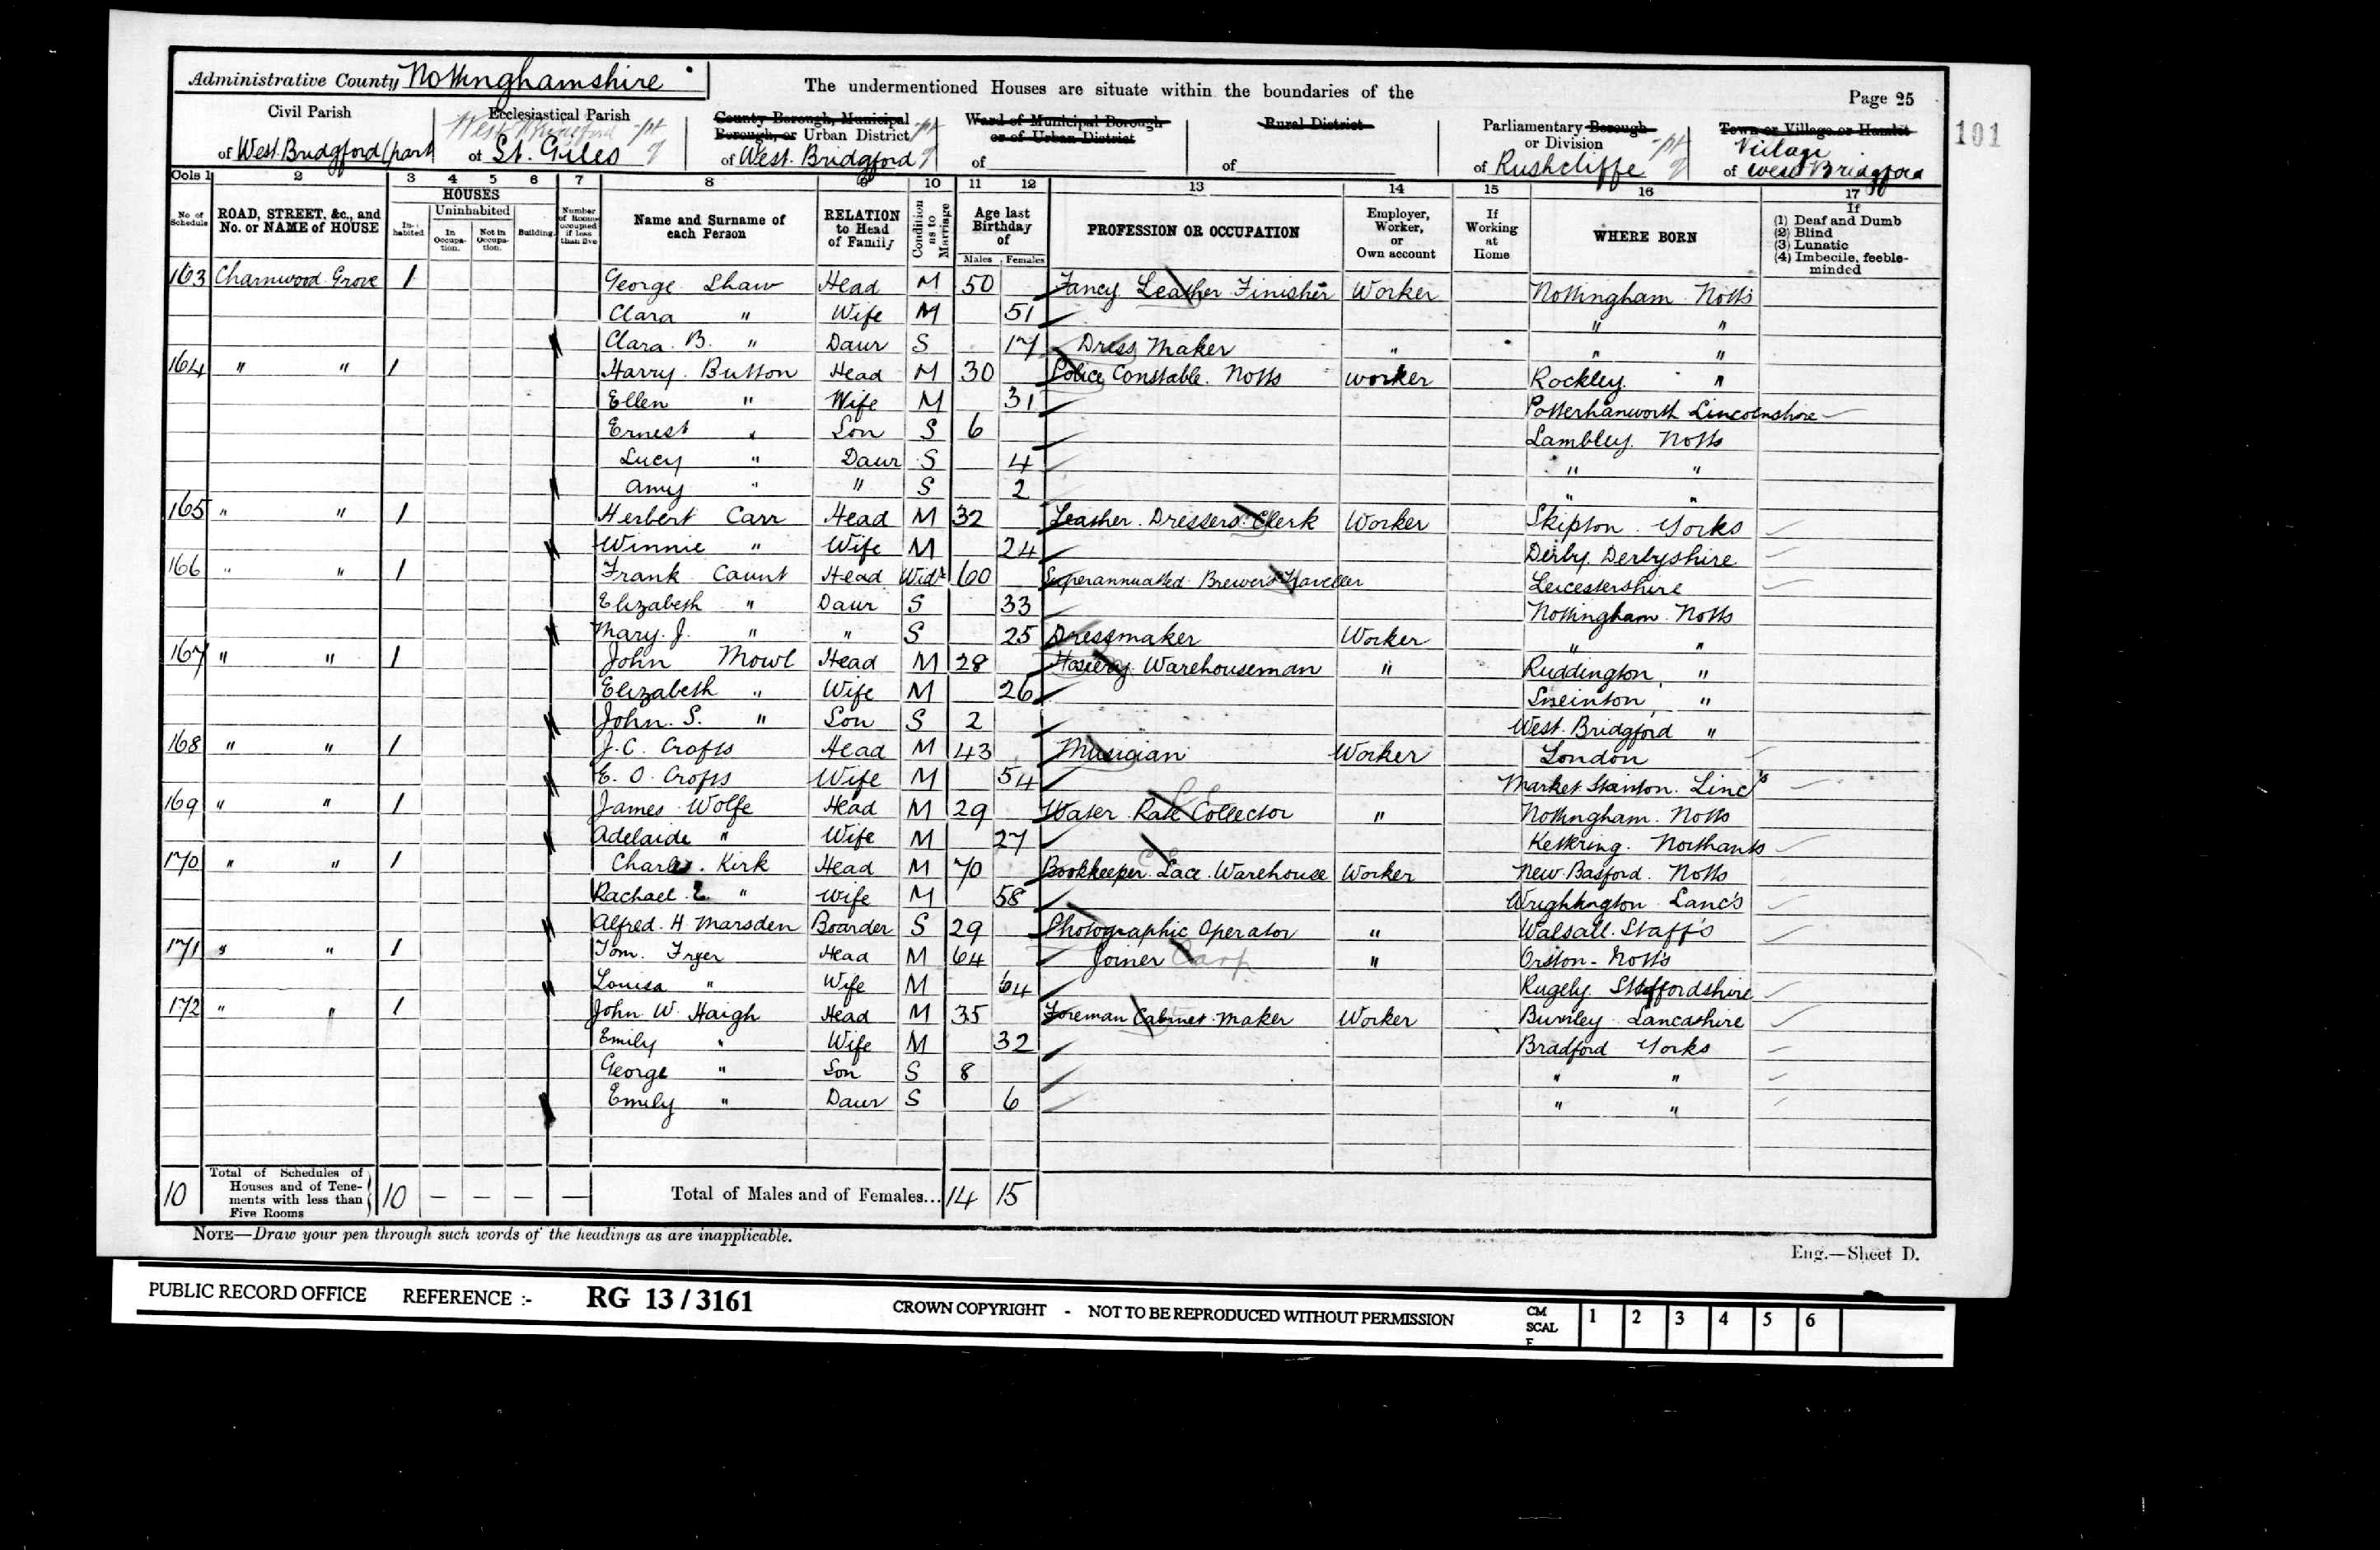 Administrative County Nottinghamshire
The undermentioned Houses are situate within the boundaries of the
Page 25
101
Civil Parish of West Bridgford (part
Ecclesiastical Parish of St. Giles
County Borough, Municipal Borough, or Urban District of West Bridgford
Ward of Municipal Borough or of Urban District of
Rural District of
Parliamentary Borough or Division of Rushcliffe
Town or Village or Hamlet Village of West Bridgford
Cols 1 2 3 4 5 6 7 8 9 10 11 12 13 14 15 16 17
No. of Schedule
ROAD, STREET, &c., and No. or NAME of HOUSE
HOUSES
Inhabited
Uninhabited
In Occupation.
Not in Occupation.
Building.
Number of Rooms occupied if less than five
Name and Surname of each Person
RELATION to Head of Family
Condition as to Marriage
Age last Birthday of
Males Females
PROFESSION OR OCCUPATION
Employer, Worker, or Own account
If Working at Home
WHERE BORN
If
(1) Deaf and Dumb
(2) Blind
(3) Lunatic
(4) Imbecile, feeble-minded
163 Charnwood Grove 1 George Shaw Head M 50 Fancy Leather Finisher Worker Nottingham Notts
Clara " Wife M 51 " "
Clara B. " Daur S 17 Dress Maker " " "
164 " " 1 Harry Button Head M 30 Police Constable. Notts worker Rockley. "
Ellen " Wife M 31 Potterhanworth Lincolnshire
Ernest " Son S 6 Lambley. Notts
Lucy " Daur S 4 " "
Amy " " S 2 " "
165 " " 1 Herbert Carr Head M 32 Leather Dressers Clerk Worker Skipton. Yorks
Winnie " Wife M 24 Derby. Derbyshire
166 " " 1 Frank Caunt Head Widr 60 Superannuated Brewer's Traveller Leicestershire
Elizabeth " Daur S 33 Nottingham Notts
Mary. J. " " S 25 Dressmaker Worker " "
167 " " 1 John Mowl Head M 28 Hosiery Warehouseman " Ruddington, "
Elizabeth " Wife M 26 Sneinton, "
John. S. " Son S 2 West Bridgford "
168 " " 1 J. C. Crofts Head M 43 Musician Worker London
E. O. Crofts Wife M 54 Market Stainton. Linc's
169 " " 1 James Wolfe Head M 29 Water Rate Collector " Nottingham. Notts
Adelaide " Wife M 27 Kettring. Northants
170 " " 1 Charles. Kirk Head M 70 Bookkeeper. Lace. Warehouse Worker New Basford. Notts
Rachael E. " Wife M 58 Wrightington Lanc's
Alfred. H Marsden Boarder S 29 Photographic Operator " Walsall. Staff's
171 " " 1 Tom. Fryer Head M 64 Joiner Carp " Orston - Notts
Louisa " Wife M 64 Rugely. Staffordshire
172 " " 1 John W. Haigh Head M 35 Foreman Cabinet Maker Worker Burnley Lancashire
Emily " Wife M 32 Bradford Yorks
George " Son S 8 " "
Emily " Daur S 6 " "
10 Total of Schedules of Houses and of Tenements with less than Five Rooms 10 — — — — Total of Males and of Females... 14 15
NOTE—Draw your pen through such words of the headings as are inapplicable.
Eng.—Sheet D.
PUBLIC RECORD OFFICE REFERENCE :- RG 13 / 3161
CROWN COPYRIGHT - NOT TO BE REPRODUCED WITHOUT PERMISSION
CM SCALE 1 2 3 4 5 6